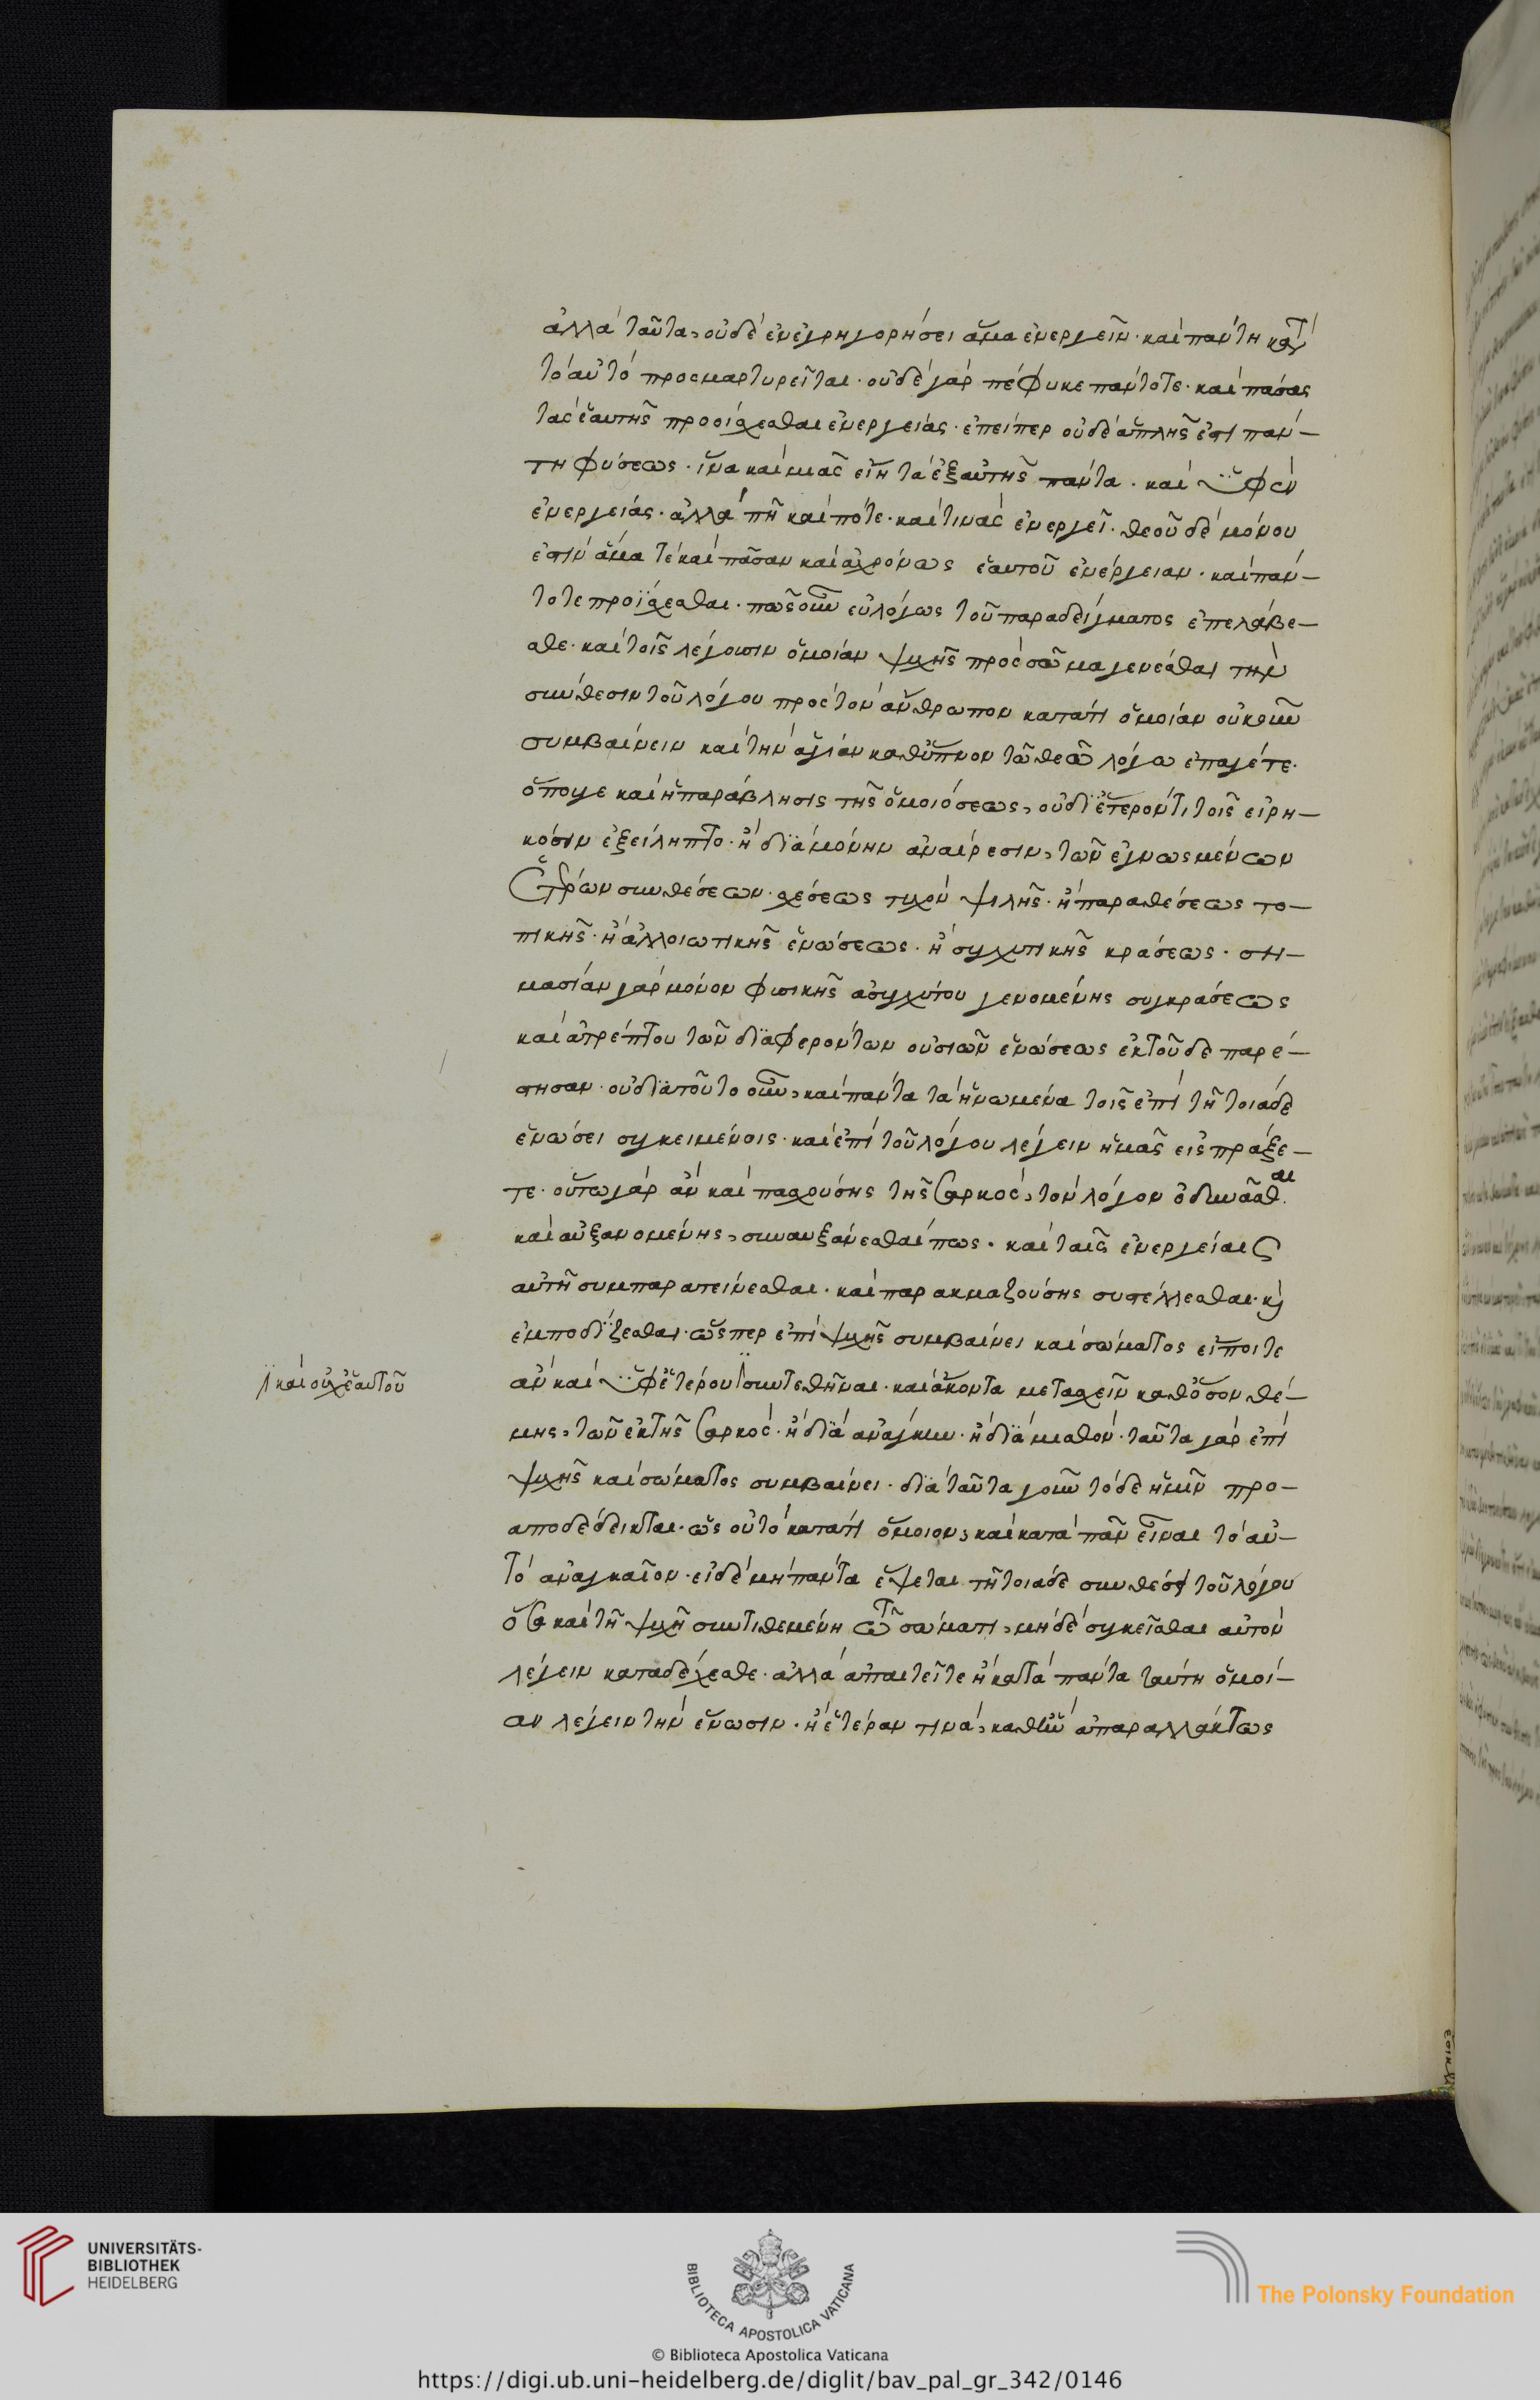 ἀλλὰ ταῦτα, οὐδὲ ἐν ἐγρηγορήσει ἅμα ἐνεργεῖν· καὶ πάντη κατὰ
τὸ αὐτὸ προσμαρτυρεῖται· οὐδὲ γὰρ πέφυκε πάντοτε· καὶ πάσας
τὰς ἑαυτῆς προσίεσθαι ἐνεργείας· ἐπείπερ οὐδὲ ἁπλῆς ἐστι πάν–
τη φύσεως· ἵνα καὶ μιᾶς εἴη τὰ ἐξ αὐτῆς πάντα· καὶ ὑφ' ἓν
ἐνεργείας· ἀλλὰ πῆ καὶ πότε· καὶ τινὰς ἐνεργεῖ· θεοῦ δὲ μόνου
ἐστὶν ἅμα τὲ καὶ πᾶσαν καὶ ἀχρόνως ἑαυτοῦ ἐνέργειαν· καὶ πάν–
τοτε προΐσχεσθαι· πῶς οὖν εὐλόγως τοῦ παραδείγματος ἐπελάβε–
σθε· καὶ τοῖς λέγουσιν ὁμοίαν ψυχῆς πρὸς σῶμα γενέσθαι τὴν
σύνθεσιν τοῦ λόγου πρὸς τὸν ἄνθρωπον κατάτι ὁμοίαν οὐκοῦν
συμβαίνειν καὶ τὴν ἀργίαν καθύπνον τῶ θεῶ λόγω ἐπαγέτε·
ὅπουγε καὶ ἡ παράβλησις τῆς ὁμοιόσεως, οὐδι' ἕτερόν τι τοῖς εἰρη–
κόσιν ἐξείληπτο· ἢ διὰ μόνην ἀναίρεσιν, τῶν ἐγνωσμένων
ἑτέρων συνθέσεων· σχέσεως τυχὸν ψιλῆς· ἢ παραθέσεως το–
πικῆς· ἢ ἀλλοιωτικῆς ἑνώσεως· ἢ συγχυτικῆς κράσεως· ση–
μασίαν γὰρ μόνον φυσικῆς ἀσυγχύτου γενομένης συγκράσεως
καὶ ἀτρέπτου τῶν διαφερόντων οὐσιῶν ἑνώσεως ἐκ τοῦδε παρέ–
στησαν· οὐ διατοῦτο οὖν, καὶ πάντα τὰ ἡνωμένα τοῖς ἐπὶ τῆ τοιάδε
ἑνώσει συγκειμένοις· καὶ ἐπὶ τοῦ λόγου λέγειν ἡμᾶς εἰσπράξε–
τε· οὕτω γὰρ ἂν καὶ πασχούσης τῆς σαρκὸς, τὸν λόγον ὀδυνᾶσθαι·
καὶ αὐξανομένης, συναυξάνεσθαί πως· καὶ ταῖς ἐνεργείαις
αὐτῆ συμπαρατείνεσθαι· καὶ παρακμαζούσης συστέλλεσθαι· καὶ
ἐμποδίζεσθαι· ὥσπερ ἐπὶ ψυχῆς συμβαίνει καὶ σώματος εἴποιτε
ἂν καὶ ὑφ' ἑτέρου συντεθῆναι· καὶ ἄκοντα μετασχεῖν καθ' ὅσον θέ–
μης, τῶν ἐκ τῆς σαρκὸς· ἢ διὰ ἀνάγκην· ἢ διὰ μισθὸν· ταῦτα γὰρ ἐπὶ
ψυχῆς καὶ σώματος συμβαίνει· διὰ ταῦτα γοῦν τόδε ἡμῖν προ–
αποδέδεικται· ὡς οὐ τὸ κατάτι ὅμοιον, καὶ κατὰ πᾶν εἶναι τὸ αὐ–
τὸ ἀναγκαῖον· εἰ δὲ μὴ πάντα ἕψεται τῆ τοιάδε συνθέσει τοῦ λόγου
ὅσα καὶ τῆ ψυχῆ συντιθεμένη τῶ σώματι, μηδὲ συγκεῖσθαι αὐτὸν
λέγειν καταδέχεσθε· ἀλλὰ ἀπαιτεῖτε ἢ κατὰ πάντα ταύτη ὁμοί–
αν λέγειν τὴν ἕνωσιν· ἢ ἑτέραν τινὰ, καθ' ἣν ἀπαραλλάκτως
καὶ οὐχ ἑαυτοῦ
UNIVERSITÄTS-
BIBLIOTHEK
HEIDELBERG
BIBLIOTECA APOSTOLICA VATICANA
The Polonsky Foundation
© Biblioteca Apostolica Vaticana
https://digi.ub.uni-heidelberg.de/diglit/bav_pal_gr_342/0146